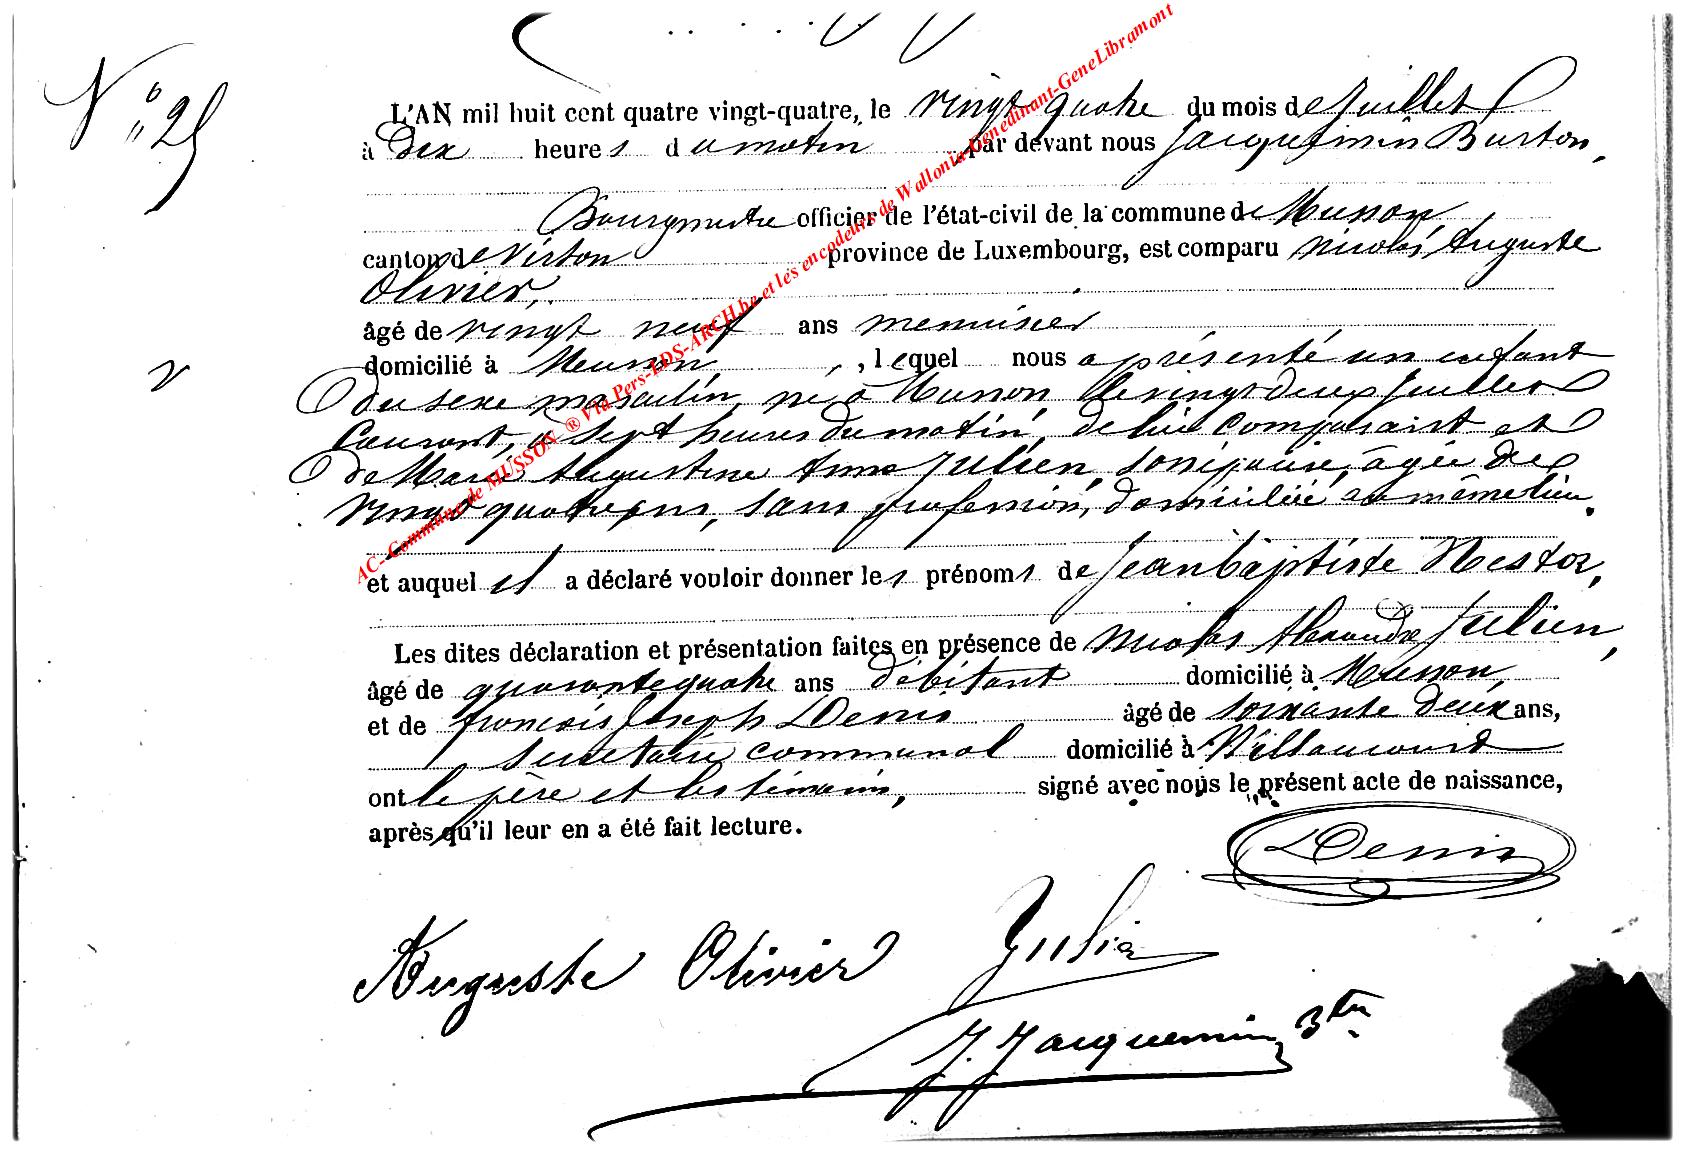 N° 25
L'AN mil huit cent quatre vingt-quatre, le vingt quatre du mois de Juillet
à dix heures du matin par devant nous Jacquemin Burton,
Bourgmestre officier de l'état-civil de la commune de Musson,
canton de Virton province de Luxembourg, est comparu Nicolas Auguste
Olivier,
âgé de vingt neuf ans menuisier
domicilié à Musson, , lequel nous a présenté un enfant
du sexe masculin, né à Musson, le vingt deux Juillet
courant, à sept heures du matin, de lui comparaist et
de Marie Augustine Anna Julien, son épouse, âgée de
vingt quatre ans, sans profession, domiciliée au même lieu.
et auquel il a déclaré vouloir donner les prénoms de Jean baptiste Nestor,
Les dites déclaration et présentation faites en présence de Nicolas Alexandre Julien,
âgé de quarante quatre ans débitant domicilié à Musson,
et de françois Joseph Denis âgé de soixante deux ans,
secrétaire communal domicilié à Willancourt
ont le père et les témoins, signé avec nous le présent acte de naissance,
après qu'il leur en a été fait lecture.
Denis
Auguste Olivier Julien
J. Jacquemin Btn
AC- Commune de MUSSON ® Via Pers-LDS-ARCH.be et les encodeurs de Wallonia-Genedinant-GeneLibramont